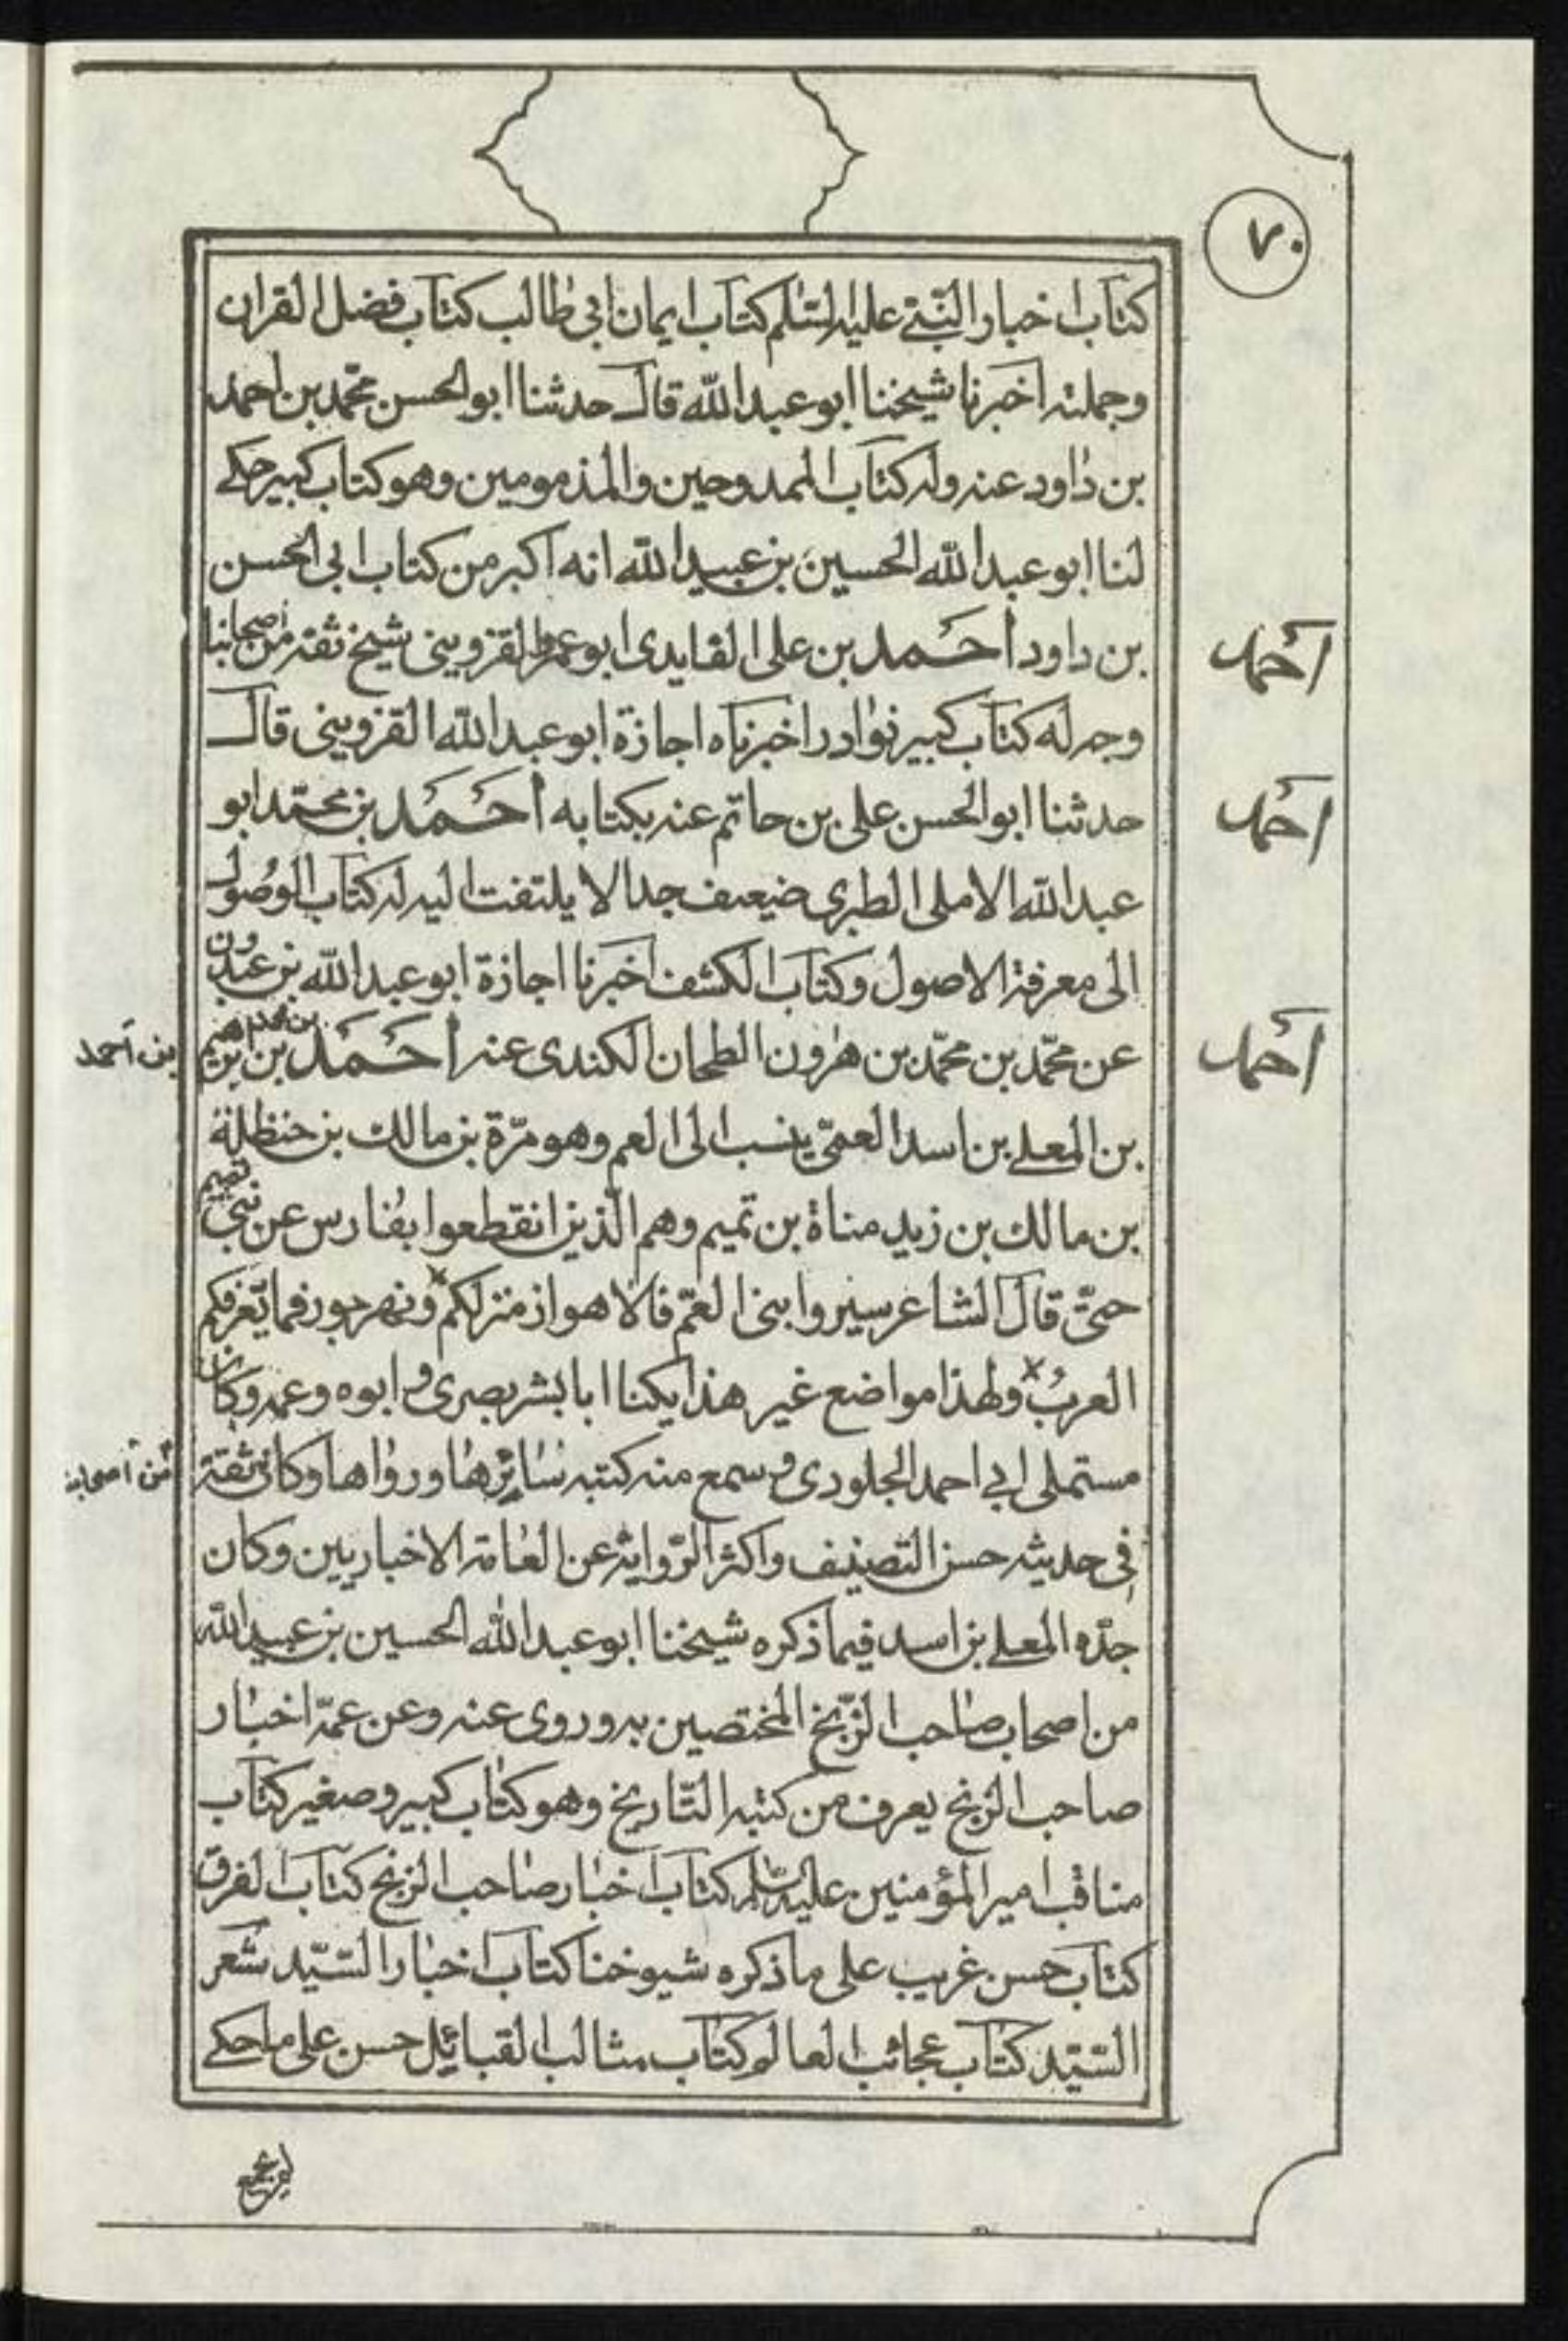 ٧٠
كتاب اخبار النبي عليه السلم كتاب ايمان ابي طالب كتاب فضل القران
وحملته اخبرنا شيخنا ابو عبد الله قال حدثنا ابو الحسن محمد بن احمد
بن داود عنه وله كتاب الممدوحين والمذمومين وهو كتاب كبير حكى
لنا ابو عبد الله الحسين بن عبيد الله انه اكبر من كتاب ابي الحسن
بن داود أحمد بن علي الفايدى ابو عمرو القزوينى شيخ ثقه من اصحابنا
احمد
وجه له كتاب كبير نوادر اخبرناه اجازة ابو عبد الله القزوينى قال
حدثنا ابو الحسن على بن حاتم عنه بكتابه أحمد بن محمد ابو
احمد
عبد الله الاملى الطبرى ضعيف جدا لا يلتفت اليه له كتاب الوصول
الى معرفة الاصول وكتاب الكشف اخبرنا اجازة ابو عبد الله بن عبدون
عن محمد بن محمد بن هرون الطحان الكندى عنه أحمد بن ابرهيم
احمد
بن احمد
بن المعلى بن اسد العمى ينسب الى العم وهو مرة بن مالك بن حنظلة
بن مالك بن زيد مناة بن تميم وهم الذين انقطعوا بفارس عن بنى تميم
حتى قال الشاعر سيروا بنى العم فالاهواز منزلكم ونهر جور فما يعرفكم
العرب ولهذا مواضع غير هذا يكنا ابا بشر بصرى وابوه وعمه وكان
مستملى ابي احمد الجلودى وسمع منه كتبه سائرها ورواها وكان ثقة
من اصحابنا
في حديثه حسن التصنيف واكثر الرواية عن العامة الاخباريين وكان
جده المعلى بن اسد فيما ذكره شيخنا ابو عبد الله الحسين بن عبيد الله
من اصحاب صاحب الزنج المختصين به وروى عنه وعن عمه اخبار
صاحب الزنج يعرف من كتبه التاريخ وهو كتاب كبير وصغير كتاب
مناقب امير المؤمنين عليه السلم كتاب اخبار صاحب الزنج كتاب الفرق
كتاب حسن غريب على ما ذكره شيوخنا كتاب اخبار السيد شعر
السيد كتاب عجائب العالم كتاب مثالب القبائل حسن على ما حكى